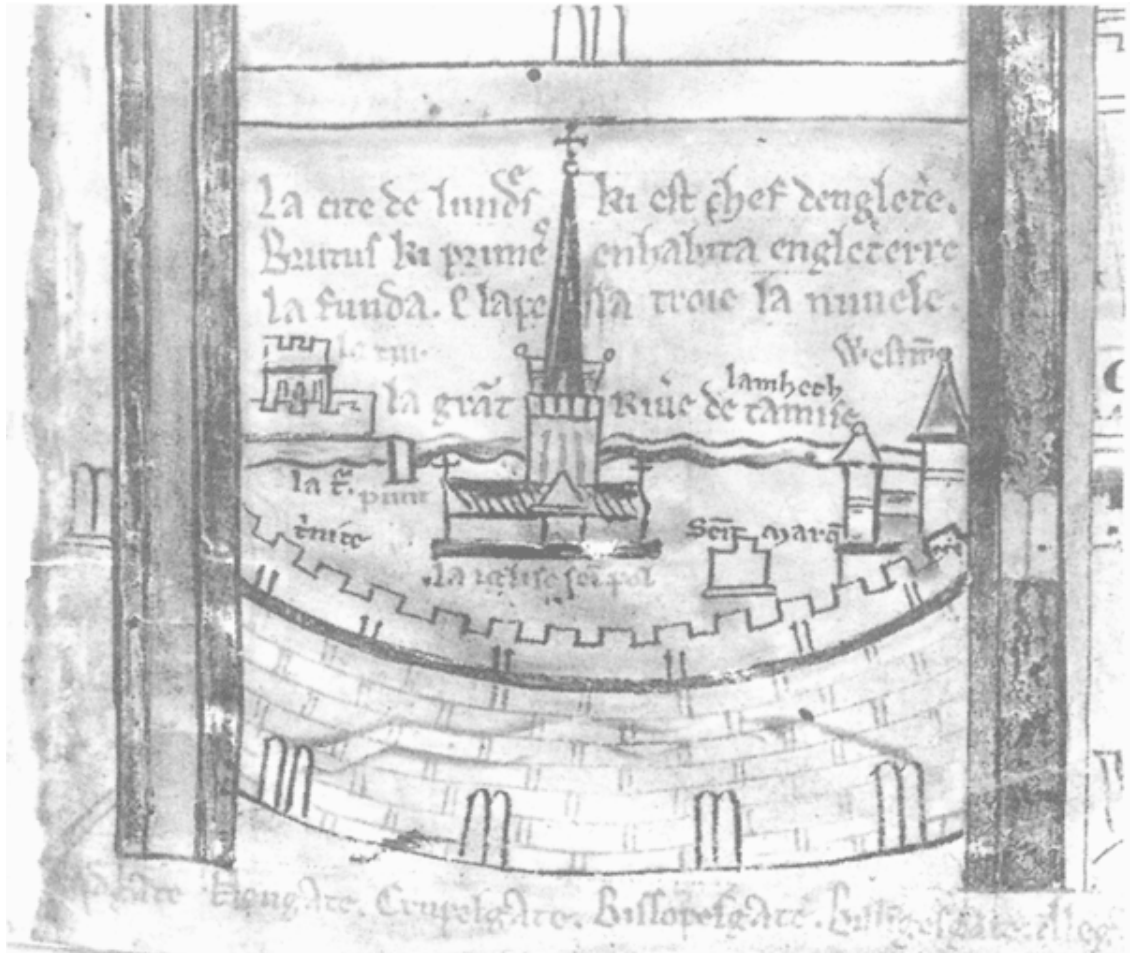 La cite de lundꝭ ki est chef dengletere.
Brutus ki primes enhabita engleterre
la funda. E lape la troie la nuuele.
Westm̄
lamheth
la grāt Riuere de tamise
la t.
punt
t̄nite
Seīt Mart̄
la iglise sei pol
Crupelgate. Bissopesgate.